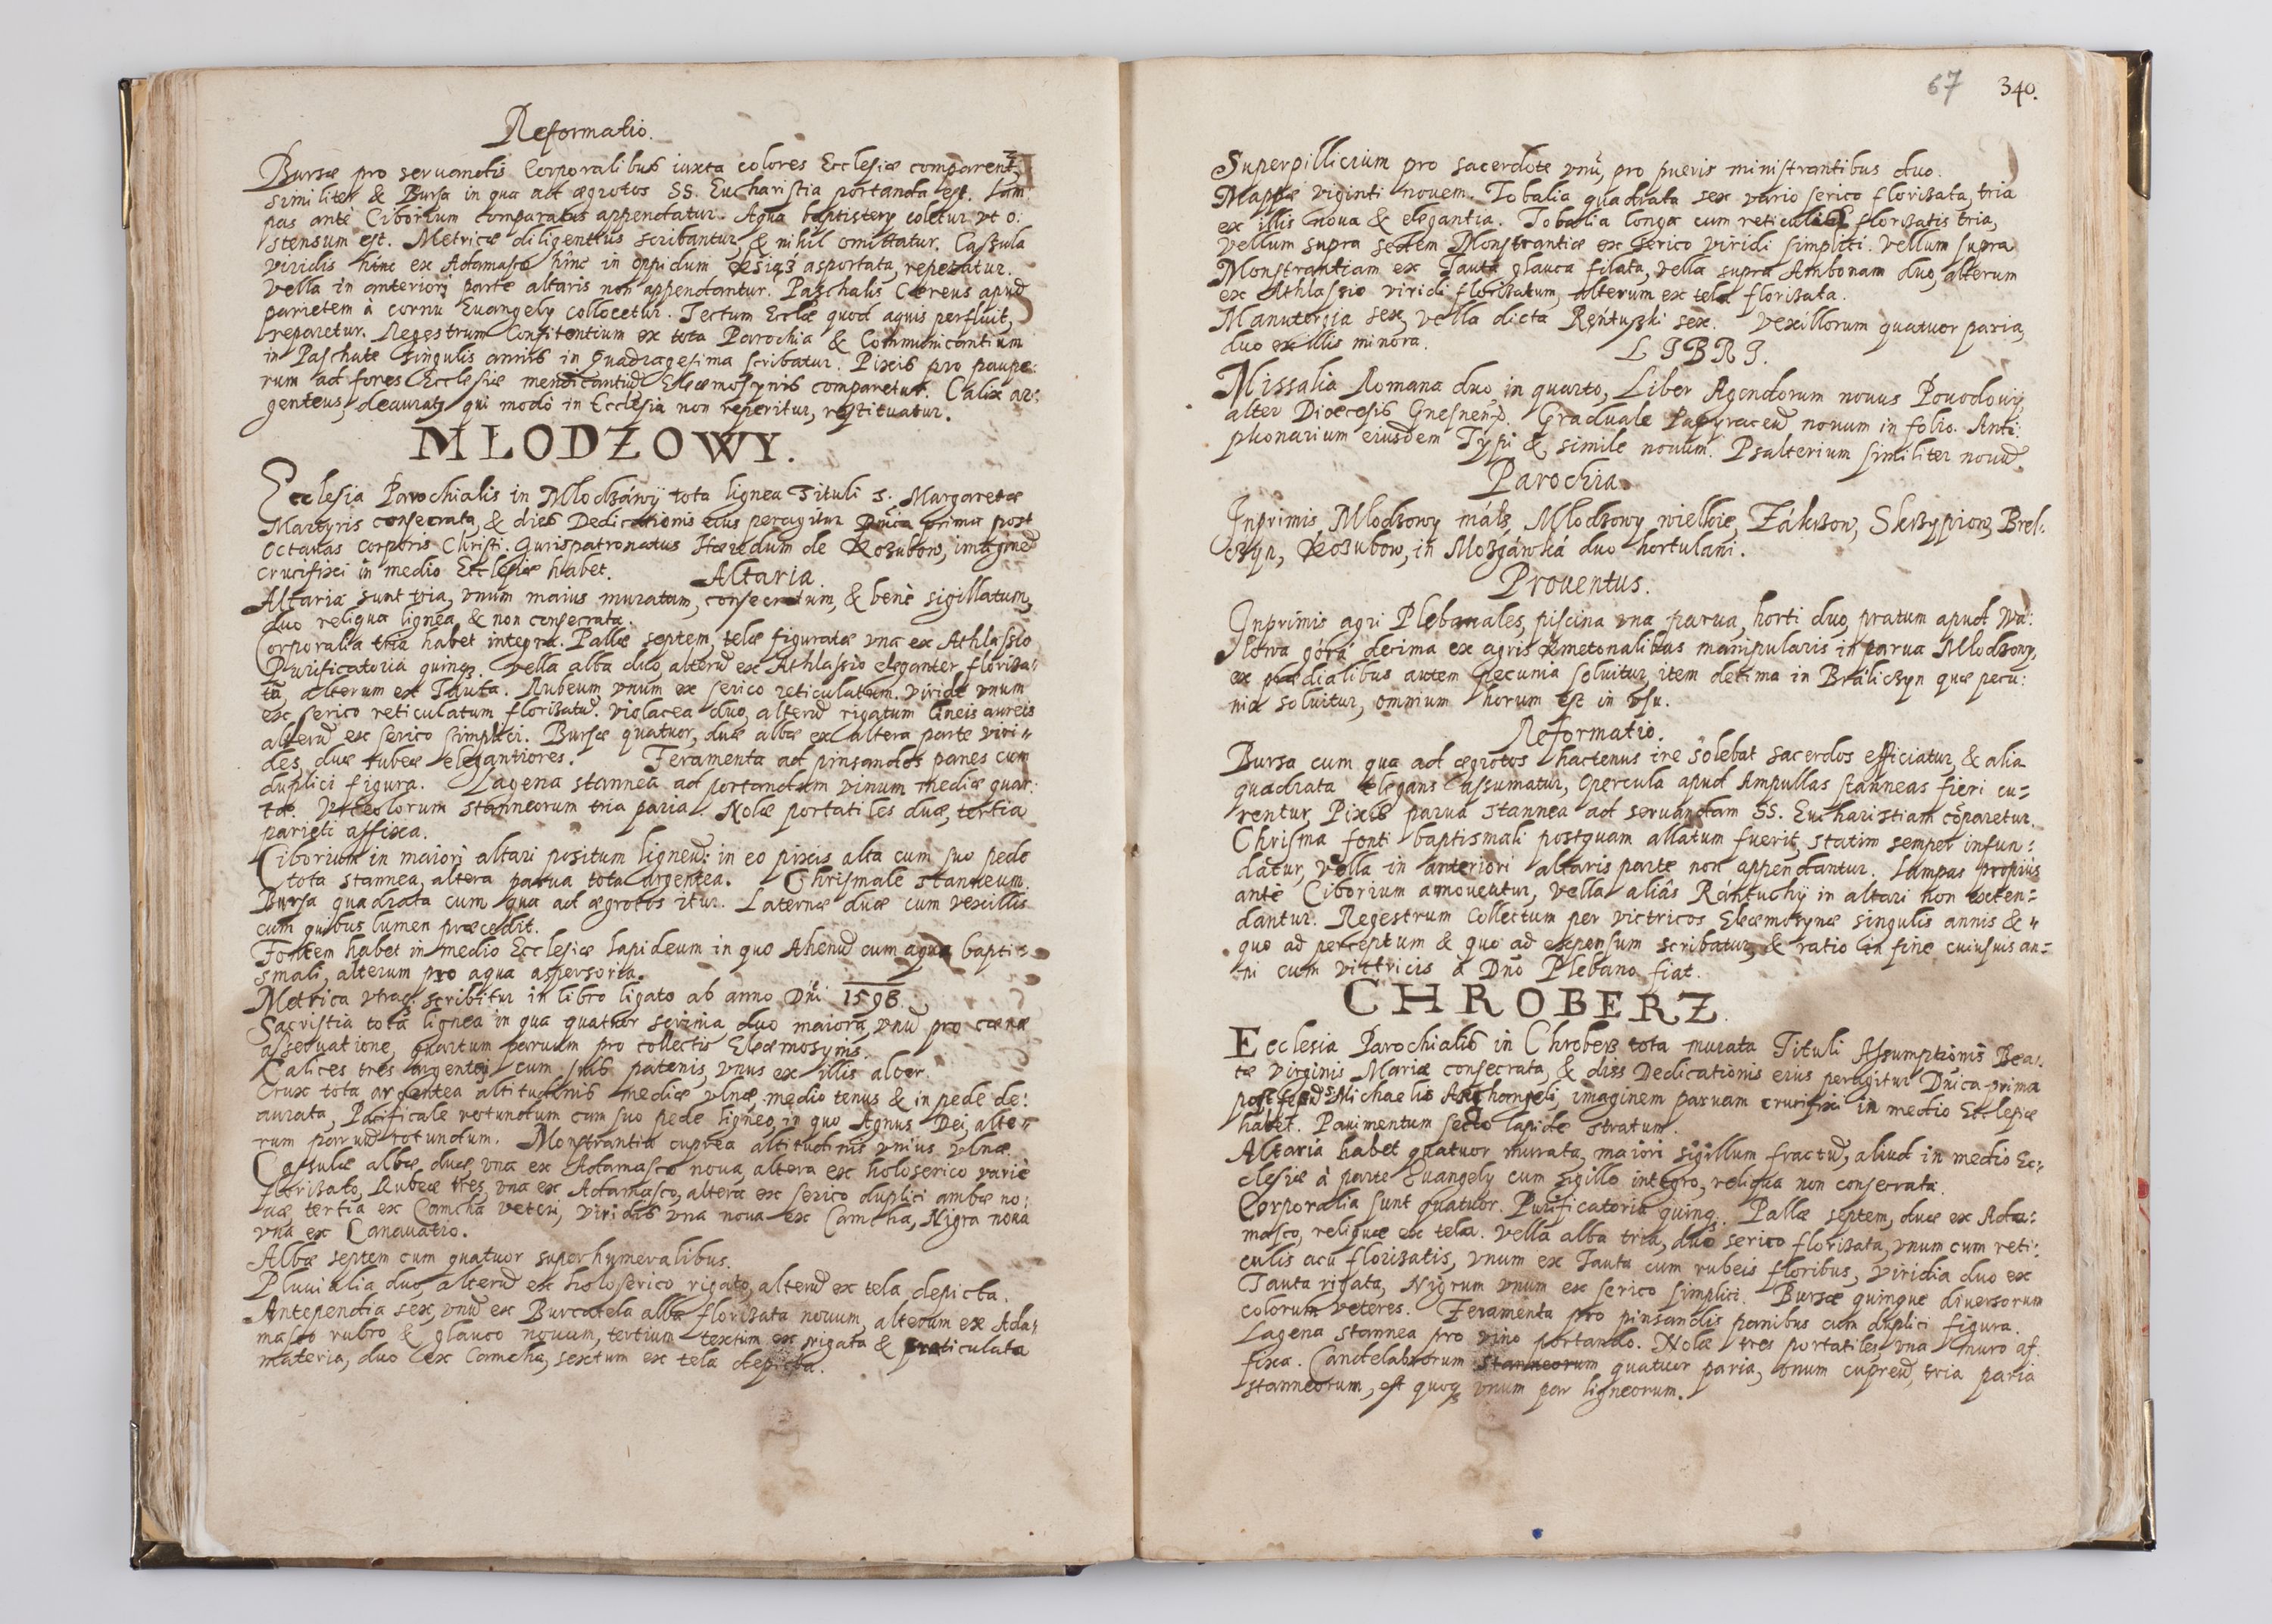 Reformatio.
Bursæ pro seruandis Corporalibus iuxta colores Ecclesiæ comparent,
similiter & Bursa in qua ad ægrotos SS. Eucharistia portanda est. Lam
pas ante Ciborium comparatus appendatur. Aqua baptistery coletur vt o:
stensum est. Metricæ diligentius scribantur, & nihil omittatur. Casula
viridis hinc ex Adamasco hinc in oppidum asportata, repetatur.
Vella in anteriori parte altaris non appendantur. Paschalis Cereus apud
parietem à cornu Euangely collocetur. Tectum Ecclæ quod aquis perfluit,
reparetur. Regestrum Confitentium ex tota Parochia & Communicantium
in Paschate singulis annis in Quadragesima scribatur. Pixis pro paupe:
rum ad fores Ecclesiæ mendicantiũ Eleæmosynis comparetur. Calix ar:
genteus, deauratq qui modo in Ecclesia non reperitur, restituatur.
MŁODZOWY.
Ecclesia Parochialis in Młodzáwÿ tota lignea Tituli S. Margaretæ
Martyris consecrata, & dies Dedicationis eius peragitur Dnica prima post
Octauas Corporis Christi. Iurispatronatus Hæredum de Kozubow, imaginẽ
crucifixi in medio Ecclesiæ habet. Altaria.
Altaria sunt tria, vnum maius muratum, consecratum, & benè sigillatum,
duo reliqua lignea, & non consecrata.
Corporalia tria habet integra. Pallæ septem, telæ figuratæ vna ex Athlassio
Purificatoria quinq3. Vella alba duo, alterũ ex Athlassio eleganter floriza:
tũ, alterum ex Tauta. Rubeum vnum ex serico reticulatum. Viride vnum
ex serico reticulatum florizatũ. Violacea duo, alterũ rigatum lineis aureis
alterũ ex serico simplici. Bursæ quatuor, duæ albæ ex altera parte viri=
des, duæ rubeæ elegantiores. Feramenta ad pinsandos panes cum
duplici figura. Lagena stannea ad portandum vinum mediæ quar:
tæ. Vrceolorum stanneorum tria paria. Nolæ portatiles duæ, tertia
parieti affixa.
Ciborium in maiori altari positum ligneũ: in eo pixis alta cum suo pede
tota stannea, altera parua tota argentea. Chrismale stanneum.
Bursa quadrata cum qua ad ægrotos itur. Laternæ duæ cum vexillis
cum quibus lumen præcedit.
Fontem habet in medio Ecclesiæ lapideum in quo Ahenũ cum aqua bapti=
smali, alterum pro aqua aspersoria.
Metrica vtraq3 scribitur in libro ligato ab anno Dñi 1598.
Sacristia tota lignea in qua quatuor scrinia, duo maiora, vnũ pro
asseruatione, quartum paruum pro collectis Eleæmosynis.
Calices tres argentei cum suis patenis, vnus ex illis alter.
Crux tota argentea altitudinis mediæ vlnæ medio tenus & in pede de:
aurata, Pacificale rotundum cum suo pede ligneo, in quo Agnus Dei, alte=
rum paruũ rotundum. Monstrantia cuprea altitudinis vnius vlnæ.
Casulæ albæ duæ, vna ex Adamasco noua, altera ex holoserico variè
florizato, Rubeæ tres, vna ex Adamasco, altera ex serico duplici ambæ no:
uæ, tertia ex Camcha veteri, viridis vna noua ex Camcha, Nigra noua
vna ex Canauatio.
Albæ septem cum quatuor superhymeralibus.
Pluuialia duo, alterũ ex holoserico rigato, alterũ ex tela depicta.
Antependia sex, vnũ ex Burcatela alba florizata nouum, alterum ex Ada:
masco rubro & glauco nouum, tertium textum ex rigata & reticulata
materia, duo ex Camcha, sextum ex tela depicta.
67 340.
Superpillicium pro sacerdote vnũ, pro pueris ministrantibus duo.
Mappæ viginti nouem. Tobalia quadrata sex vario serico florizata, tria
ex illis noua & elegantia. Tobalia longa cum reticulis florizatis tria,
vellum supra sedem Monstrantiæ ex serico viridi simplici. Vellum supra
Monstrantiam ex Tauta glauca filata, vella supra Ambonam duo, alterum
ex Athlassio viridi florizatum, alterum ex tela florizata.
Manutergia sex, vella dicta Rentuszki sex. Vexillorum quatuor paria,
duo ex illis minora.
LIBRI.
Missalia Romana duo, in quarto, Liber Agendorum nouus Pouodowij
alter Diœcesis Gnesneñ. Graduale Papyraceũ nouum in folio. Anti:
phonarium eiusdem Typi & simile nouum. Psalterium similiter nouũ.
Parochia.
Inprimis Młodzowy máłe, Młodzowy wielkie, Zákrzow, Skrzypiow, Bresz
czyn, Kozubow, in Mozgáwká duo hortulani.
Prouentus.
Inprimis agri Plebanales, piscina vna parua, horti duo, pratum apud Wa:
Nowa górá decima ex agris Kmetonalibus manipularis in parua Mlodzowy,
ex prædialibus autem pecunia soluitur, item decima in Bráliczyn quæ pecu:
nia soluitur, omnium horum est in vsu.
Reformatio.
Bursa cum qua ad ægrotos hactenus ire solebat sacerdos efficiatur, & alia
quadrata elegans assumatur, Opercula apud Ampullas stanneas fieri cu=
rentur, Pixis parua stannea ad seruandam SS. Eucharistiam cõparetur.
Chrisma fonti baptismali postquam allatum fuerit, statim semper infun:
datur, Vella in anteriori altaris parte non appendantur. Lampas propius
ante Ciborium amoueatur, Vella aliâs Rántuchÿ in altari non exten=
dantur. Regestrum Collectum per victricos Eleæmosynæ singulis annis &
quo ad perceptum & quo ad expensum scribatur, & ratio in fine cuiusuis an=
ni cum vittricis à Dño Plebano fiat.
CHROBERZ.
Ecclesia Parochialis in Chroberz tota murata Tituli Assumptionis Bea:
tæ Virginis Mariæ consecrata, & dies Dedicationis eius peragitur Dnica prima
post festũ S. Michaelis Archangeli, imaginem paruam crucifixi in medio Ecclesiæ
habet. Pauimentum secto lapide stratum.
Altaria habet quatuor murata, maiori sigillum fractũ, aliud in medio Ec:
clesiæ à parte Euangely cum sigillo integro, reliqua non consecrata.
Corporalia sunt quatuor. Purificatoria quinq3. Pallæ septem, duæ ex Ada:
masco, reliquæ ex tela. Vella alba tria, duo serico florizata, vnum cum reti:
culis acu florizatis, vnum ex Tauta cum rubeis floribus, viridia duo ex
Tauta rigata, Nigrum vnum ex serico simplici. Bursæ quinque diuersorum
colorum veteres. Feramenta pro pinsandis panibus cum duplici figura.
Lagena stannea pro vino portando. Nolæ tres portatiles, vna muro af:
fixa. Candelabrorum stanneorum quatuor paria, vnum cupreũ, tria paria
stanneorum, est quoq3 vnum par ligneorum.